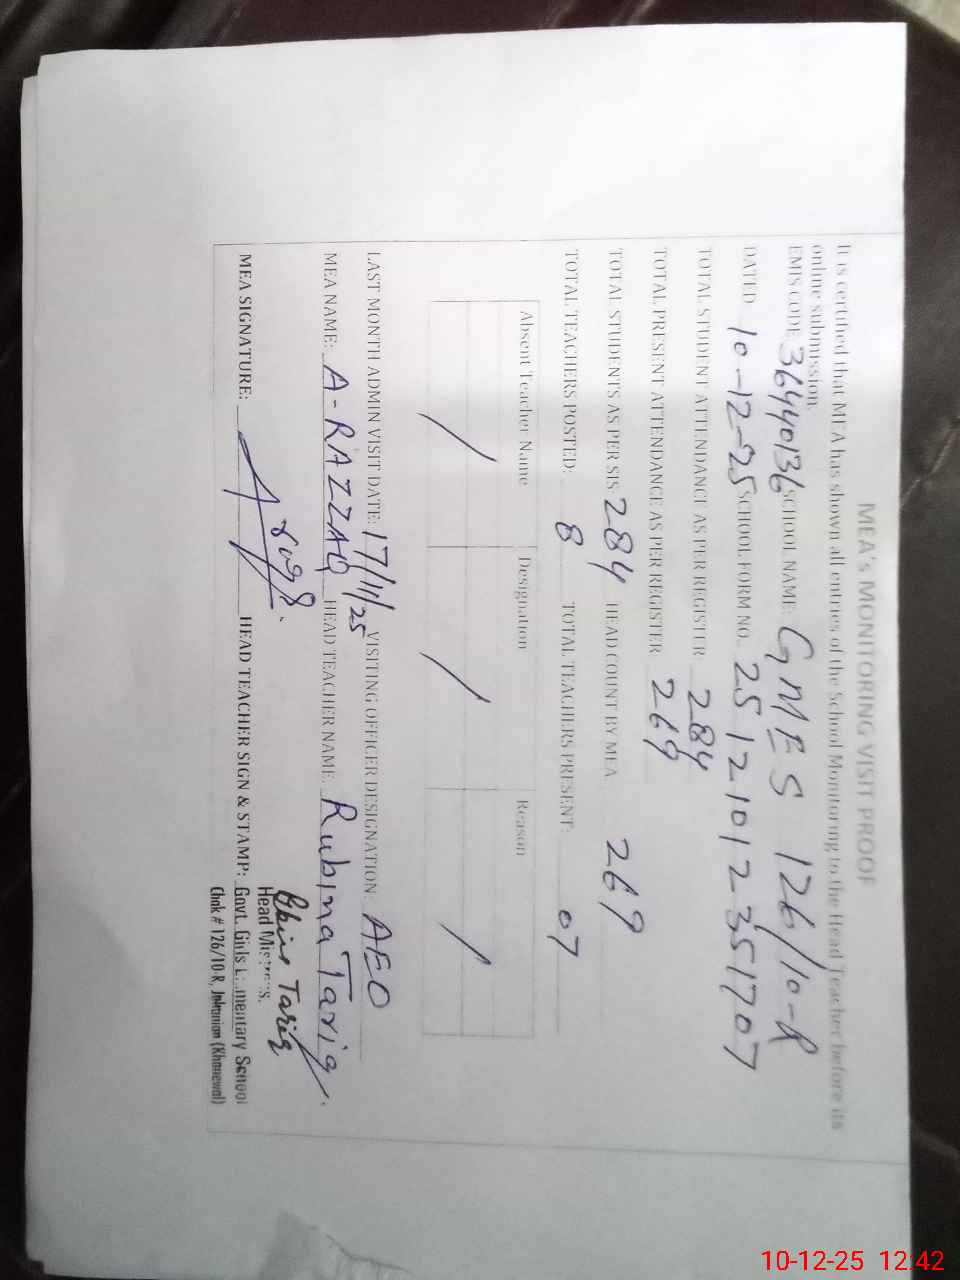 MEA's MONITORING VISIT PROOF
It is certified that MEA has shown all entries of the School Monitoring to the Head Teacher before its
online submission.
EMIS CODE 36440136 SCHOOL NAME: GMES 126/10-R
DATED 10-12-25 SCHOOL FORM NO. 25121012351707
TOTAL STUDENT ATTENDANCE AS PER REGISTER 284
TOTAL PRESENT ATTENDANCE AS PER REGISTER 269
TOTAL STUDENTS AS PER SIS 284 HEAD COUNT BY MEA 269
TOTAL TEACHERS POSTED: 8 TOTAL TEACHERS PRESENT: 07
Absent Teacher Name Designation Reason
/ / /
LAST MONTH ADMIN VISIT DATE: 17/11/25 VISITING OFFICER DESIGNATION: AEO
MEA NAME: A-RAZZAQ HEAD TEACHER NAME Rubina Tariq.
MEA SIGNATURE: HEAD TEACHER SIGN & STAMP: Tariq
Head Mistress.
Govt. Girls Elementary School
Chak # 126/10-R, Jahanian (Khanewal)
10-12-25 12:42